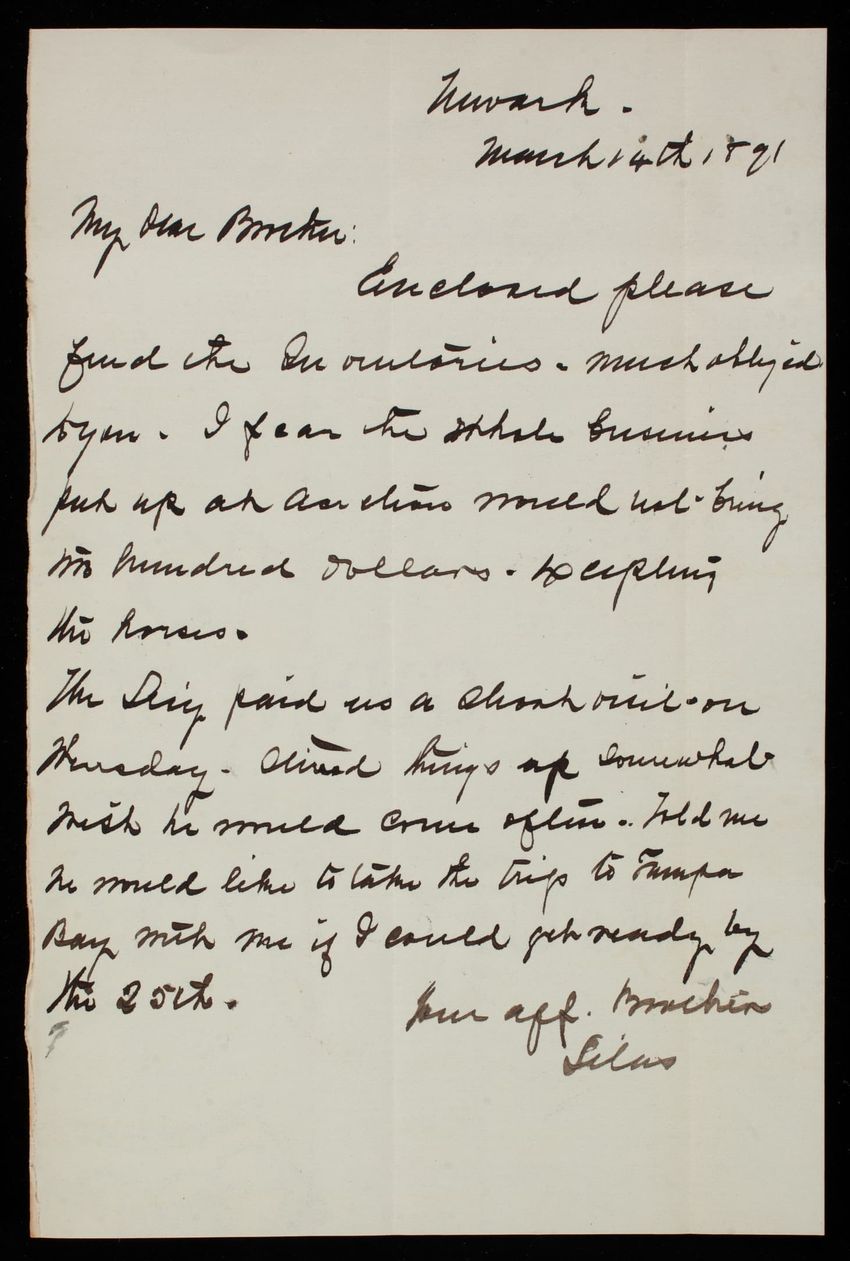 Newark.
March 14th 1891
My Dear Brother:
Enclosed please
find the Inventories. much obliged
to you. I fear the whole business
put up at auction would not bring
two hundred dollars. Excepting
the horses.
The paid us a short visit on
Thursday. stired things up somewhat
Wish he would come often. Told me
he would like to take the trip to Tampa
Bay with me if I could get ready by
the 25th.
Your aff. Brother
Silas